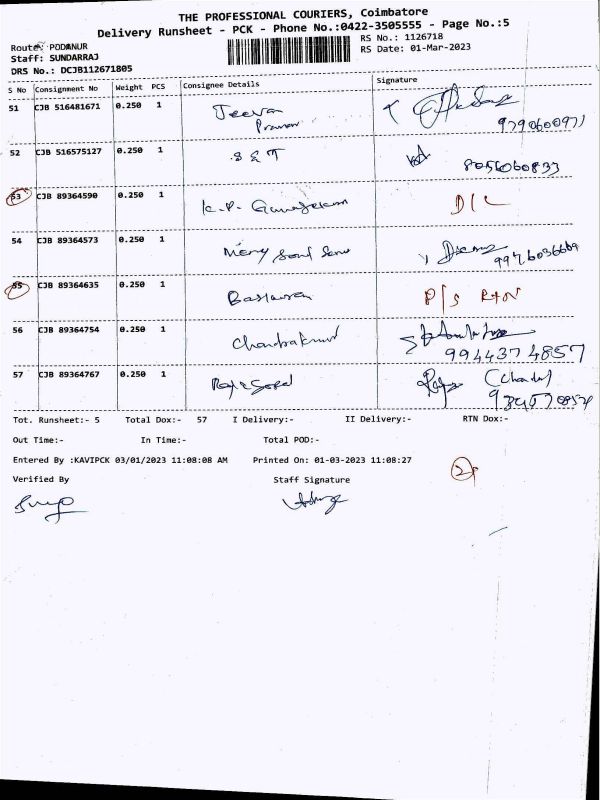 THE PROFESSIONAL COURIERS, Coimbatore
Delivery Runsheet - PCK - Phone No.:0422-3505555 - Page No.:5
Route: PODANUR
RS No.: 1126718
Staff: SUNDARRAJ
RS Date: 01-Mar-2023
DRS No.: DCJB112671805
S No Consignment No Weight PCS Consignee Details Signature
51 CJB 516481671 0.250 1 Jeevan
9790600971
52 CJB 516575127 0.250 1 8056060833
53 CJB 89364590 0.250 1 K.P. Gunasekaran D/L
54 CJB 89364573 0.250 1
9976036669
55 CJB 89364635 0.250 1 P/S RTN
56 CJB 89364754 0.250 1 Chandrakumar
9944374857
57 CJB 89364767 0.250 1 Rajagopal
Tot. Runsheet:- 5 Total Dox:- 57 I Delivery:- II Delivery:- RTN Dox:-
Out Time:- In Time:- Total POD:-
Entered By :KAVIPCK 03/01/2023 11:08:08 AM Printed On: 01-03-2023 11:08:27
Verified By Staff Signature